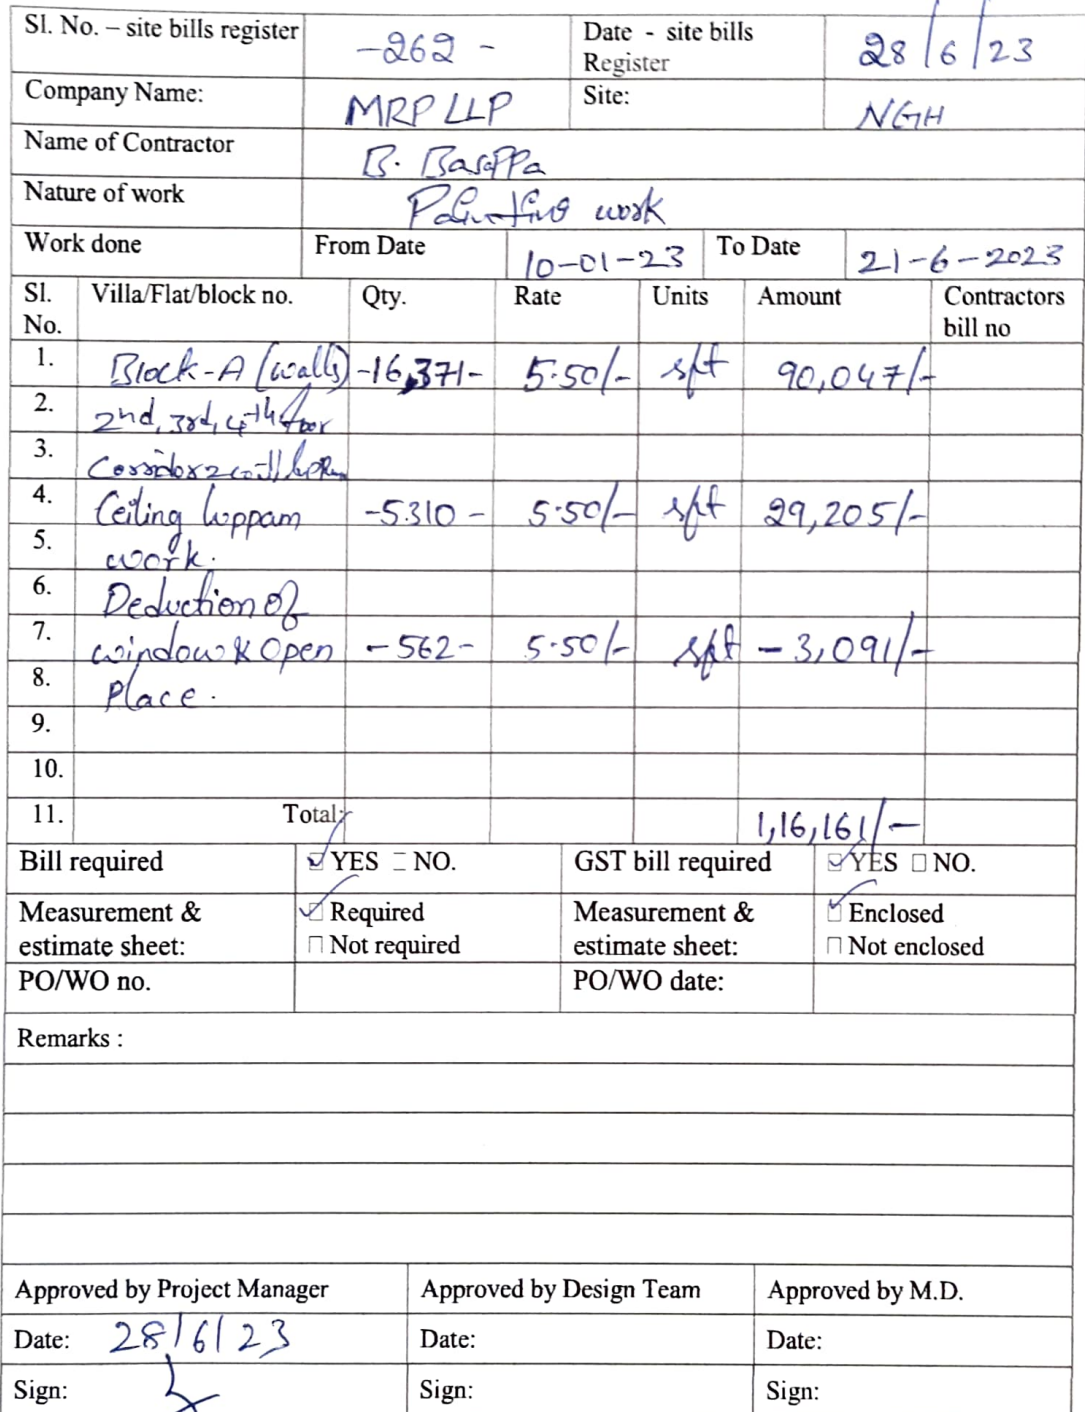 Sl. No. – site bills register -262 - Date - site bills Register 28/6/23
Company Name: MRP LLP Site: NGH
Name of Contractor B. Basappa
Nature of work Painting work
Work done From Date 10-01-23 To Date 21-6-2023
Sl. No. Villa/Flat/block no. Qty. Rate Units Amount Contractors bill no
1. Block-A (walls) -16,371- 5.50/- sft 90,047/-
2. 2nd, 3rd, 4th floor
3. Corridor
4. Ceiling luppam -5310 - 5.50/- sft 29,205/-
5. work.
6. Deduction of
7. window & Open -562- 5.50/- sft -3,091/-
8. Place.
9.
10.
11. Total: 1,16,161/-
Bill required YES NO. GST bill required YES NO.
Measurement & estimate sheet: Required Measurement & estimate sheet: Enclosed
Not required Not enclosed
PO/WO no. PO/WO date:
Remarks :
Approved by Project Manager Approved by Design Team Approved by M.D.
Date: 28/6/23 Date: Date:
Sign: Sign: Sign: